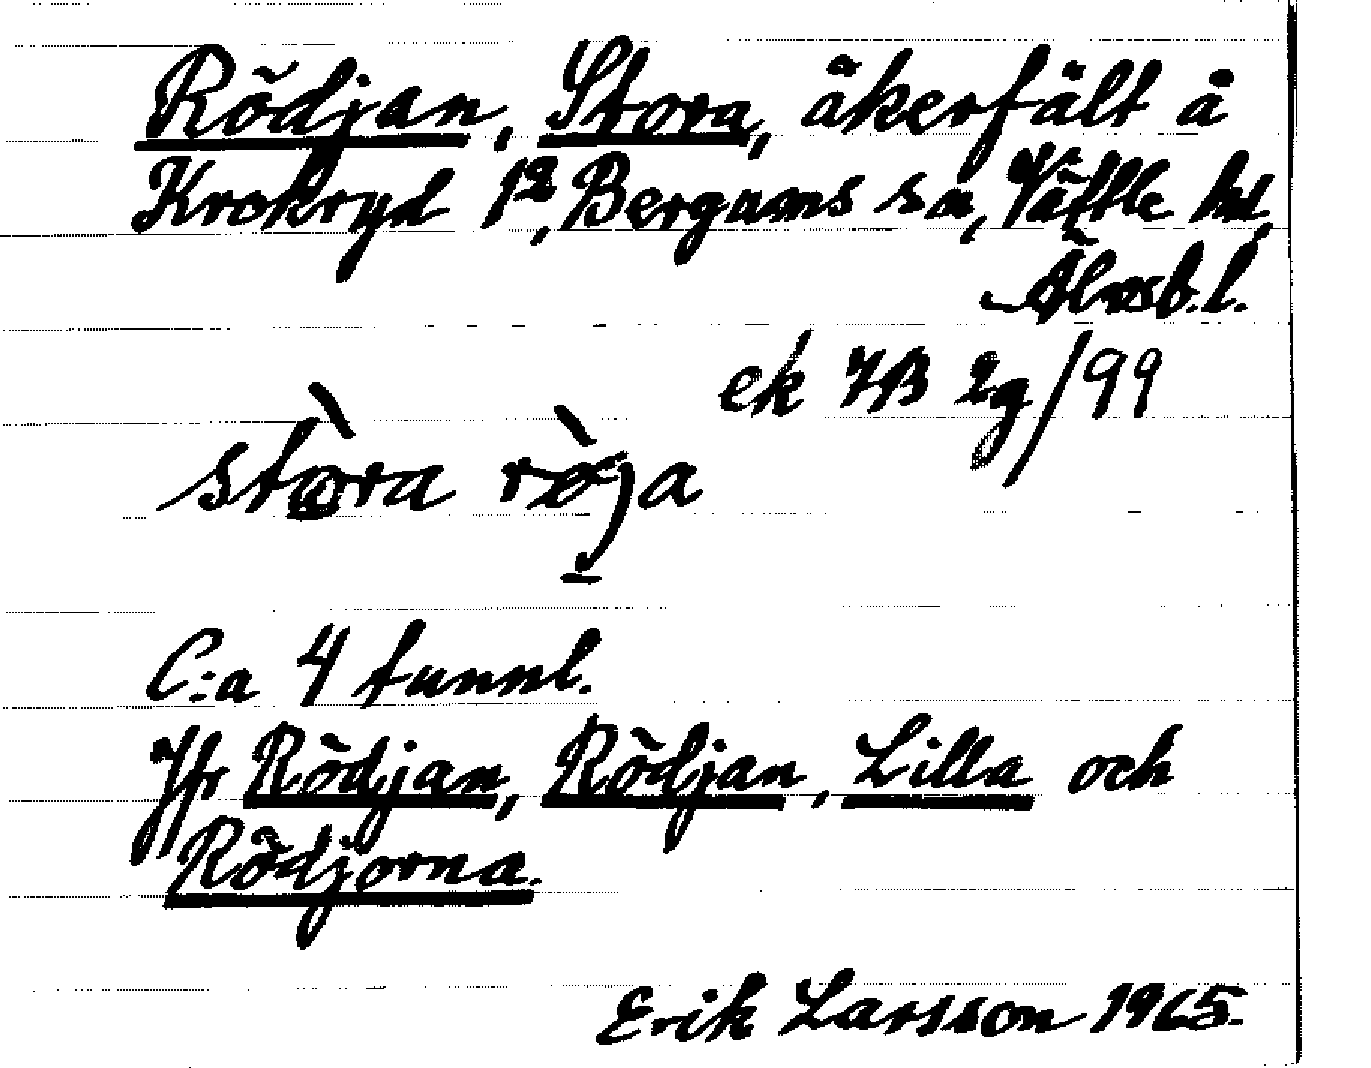 Rödjan, Stora, åkerfält å
Krokryd 1², Bergums sn, Vättle hd,
Älvsb. l.
ek 7B 2g/99
stòra ròja
C:a 4 tunnl.
Jfr Rödjan, Rödjan, Lilla och
Rödjorna.
Erik Larsson 1965.